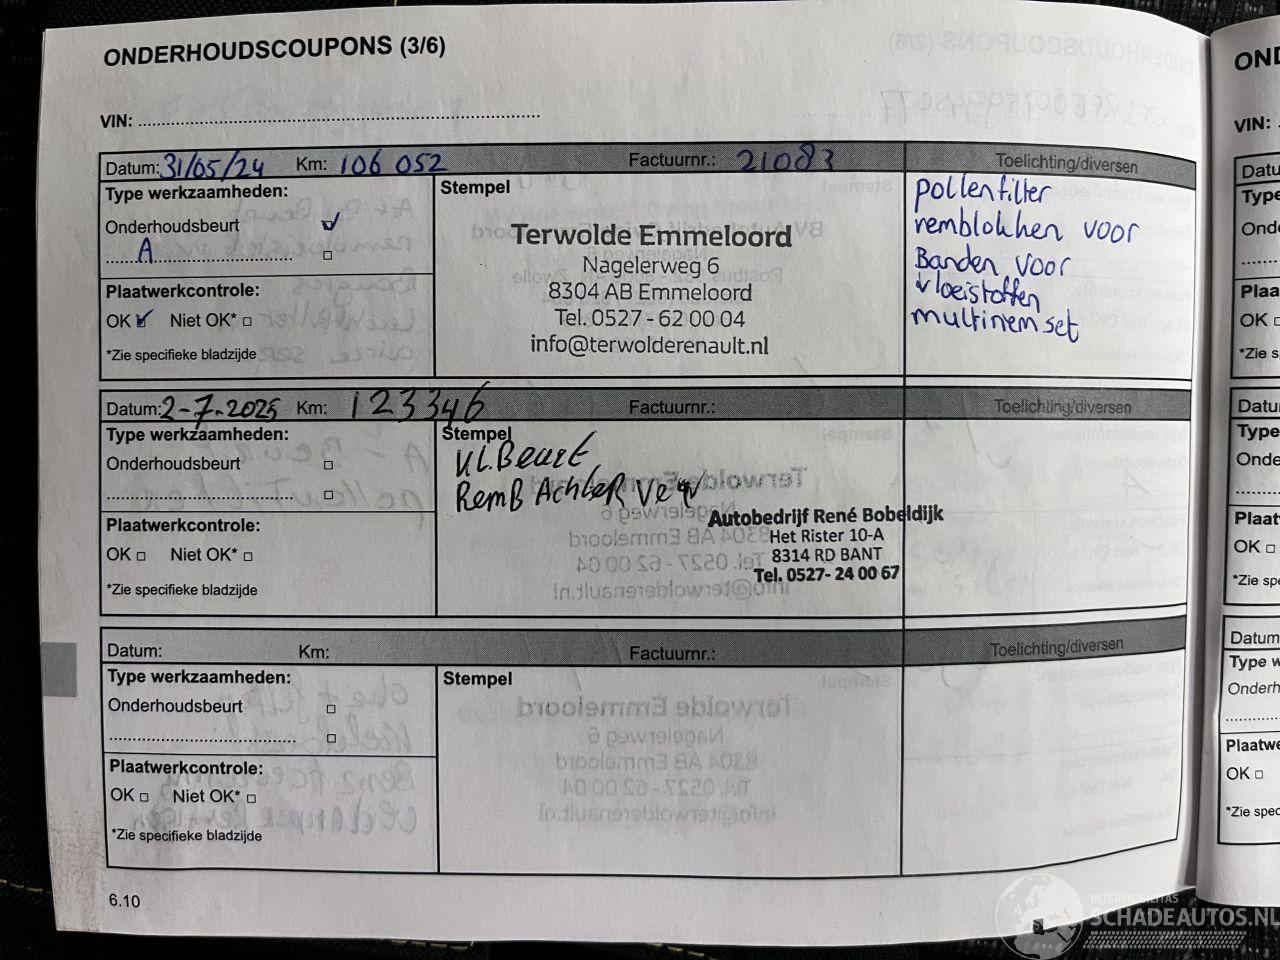 ONDERHOUDSCOUPONS (3/6)
VIN:
Datum: 31/05/24 Km: 106 052 Factuurnr.: 21083 Toelichting/diversen
Type werkzaamheden:
Onderhoudsbeurt
A
Plaatwerkcontrole:
OK Niet OK*
*Zie specifieke bladzijde
Stempel
Terwolde Emmeloord
Nagelerweg 6
8304 AB Emmeloord
Tel. 0527 - 62 00 04
info@terwolderenault.nl
pollenfilter
remblokken voor
Banden voor
vloeistoffen
multiriem set
Datum: 2-7-2025 Km: 123346 Factuurnr.: Toelichting/diversen
Type werkzaamheden:
Onderhoudsbeurt
Plaatwerkcontrole:
OK Niet OK*
*Zie specifieke bladzijde
Stempel
Beurt
RemB Achter
Autobedrijf René Bobeldijk
Het Rister 10-A
8314 RD BANT
Tel. 0527- 24 00 67
Datum: Km: Factuurnr.: Toelichting/diversen
Type werkzaamheden:
Onderhoudsbeurt
Plaatwerkcontrole:
OK Niet OK*
*Zie specifieke bladzijde
Stempel
6.10
VIN:
OK
OK
OK
INTERMOBILITAS
SCHADEAUTOS.NL